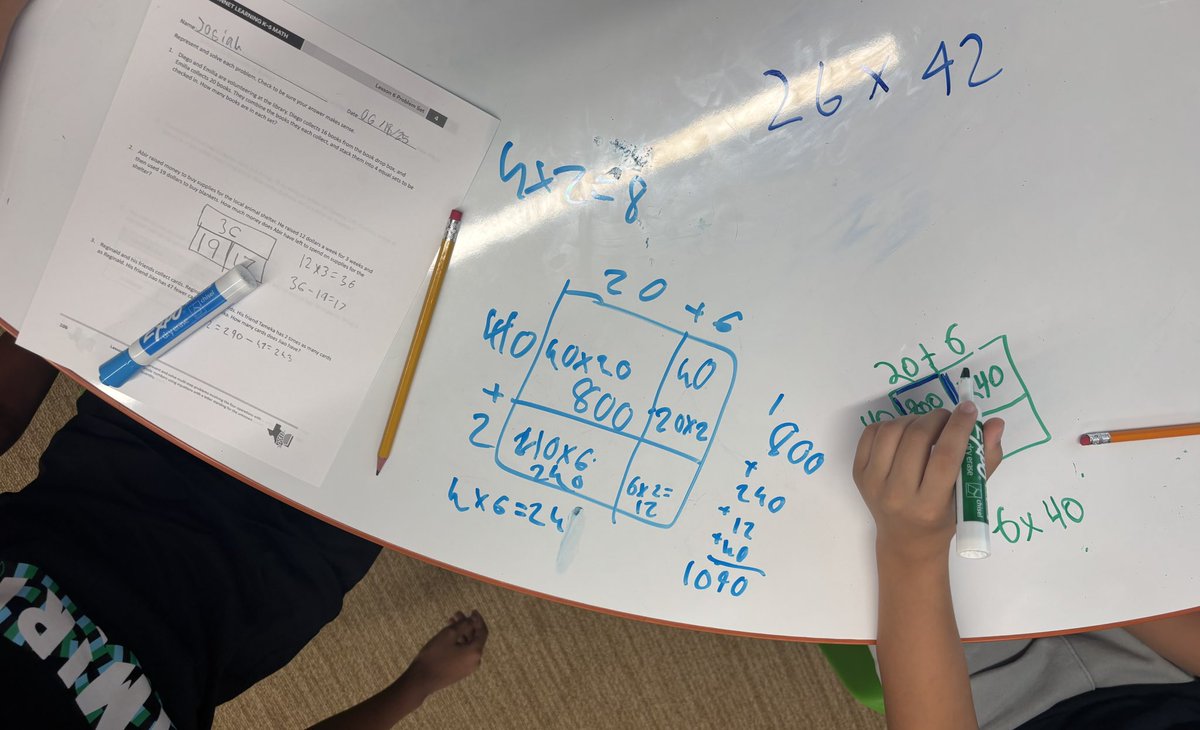 NNET LEARNING K–5 MATH
Lesson 6 Problem Set
4
Name Josiah
Date 06/18/25
Represent and solve each problem. Check to be sure your answer makes sense.
1. Diego and Emilia are volunteering at the library. Diego collects 16 books from the book drop box, and
Emilia collects 20 books. They combine the books they each collect, and stack them into 4 equal sets to be
checked in. How many books are in each set?
2. Abir raised money to buy supplies for the local animal shelter. He raised 12 dollars a week for 3 weeks and
then used 19 dollars to buy blankets. How much money does Abir have left to spend on supplies for the
shelter?
36
19 17
12×3=36
36-19=17
3. Reginald and his friends collect cards.
His friend Tameka has 2 times as many cards
as Reginald. His friend Jiao has 47 fewer
How many cards does Jiao have?
=290-47=243
EXPO
dry erase
chisel
26 x 42
4x2=8
20 + 6
40
+
2
40x20
800
40
20x2
40x6
240
6x2=
12
4x6=24
1
800
+
240
+
12
+40
1090
20+6
40
800
40
6x40
EXPO
dry erase
chisel